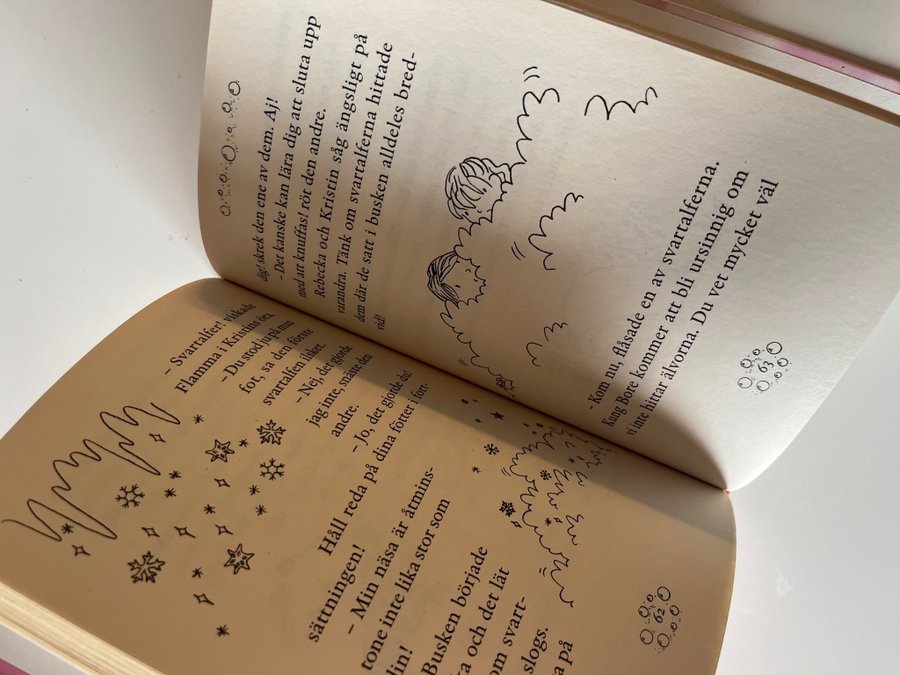 – Svartalfer! viskade
Flamma i Kristins öra.
– Du stod ju på min
fot, sa den förste
svartalfen ilsket
– Nej, det gjorde
jag inte, snäste den
andre.
– Jo, det gjorde du!
Håll reda på dina fötter i fort-
sättningen!
– Min näsa är åtmins-
tone inte lika stor som
din!
Busken började
och det lät
svart-
slogs.
på
62
dig! skrek den ene av dem. Aj!
– Det kanske kan lära dig att sluta upp
med att knuffas! röt den andre.
Rebecka och Kristin såg ängsligt på
varandra. Tänk om svartalferna hittade
dem där de satt i busken alldeles bred-
vid!
– Kom nu, flåsade en av svartalferna.
Kung Bore kommer att bli ursinnig om
vi inte hittar älvorna. Du vet mycket väl
63